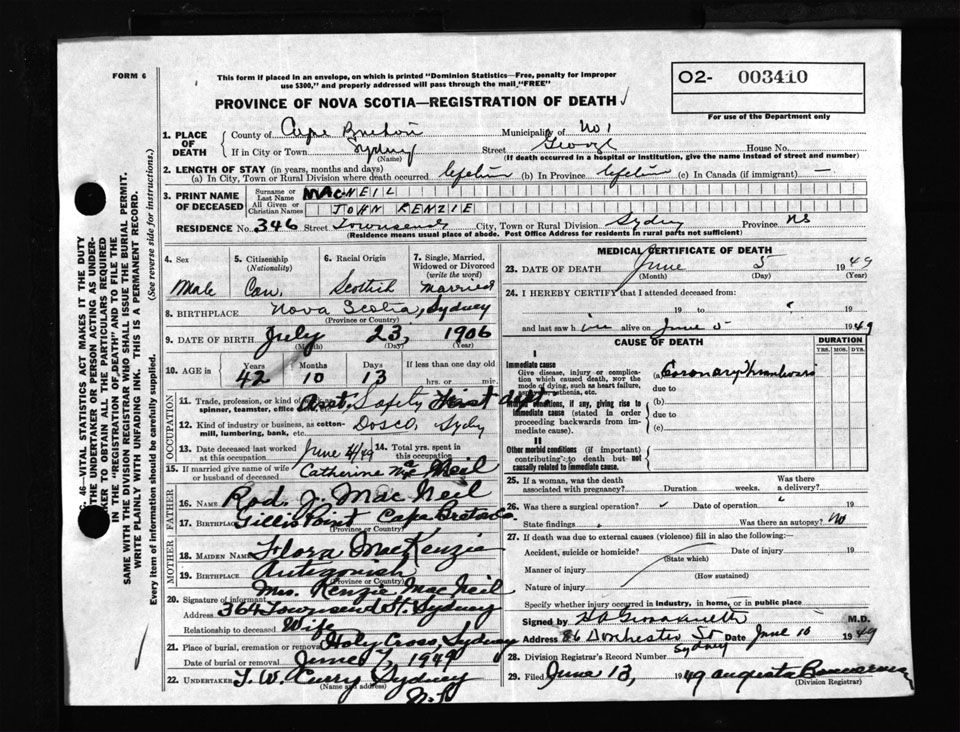 FORM 6
This form if placed in an envelope, on which is printed "Dominion Statistics—Free, penalty for improper
use $300," and properly addressed will pass through the mail "FREE"
O2- 003410
For use of the Department only
PROVINCE OF NOVA SCOTIA—REGISTRATION OF DEATH
1. PLACE OF DEATH
County of Cape Breton Municipality of No 1
If in City or Town Sydney (Name) Street George House No.
(If death occurred in a hospital or institution, give the name instead of street and number)
2. LENGTH OF STAY (in years, months and days)
(a) In City, Town or Rural Division where death occurred lifetime (b) In Province lifetime (c) In Canada (if immigrant) —
3. PRINT NAME OF DECEASED
Surname or Last Name MACNEIL
All Given or Christian Names JOHN KENZIE
RESIDENCE No. 346 Street Townsend City, Town or Rural Division Sydney Province NS
(Residence means usual place of abode. Post Office Address for residents in rural parts not sufficient)
4. Sex Male
5. Citizenship (Nationality) Can.
6. Racial Origin Scottish
7. Single, Married, Widowed or Divorced (write the word) married
8. BIRTHPLACE Nova Scotia, Sydney
(Province or Country)
9. DATE OF BIRTH July 23, 1906
(Month) (Day) (Year)
10. AGE in Years 42 Months 10 Days 13 If less than one day
hrs. or min.
OCCUPATION
11. Trade, profession, or kind of
spinner, teamster, office Safety dept.
12. Kind of industry or business, as cotton-
mill, lumbering, bank, etc. Dosco, Sydney
13. Date deceased last worked at this occupation June 4/49
14. Total yrs. spent in this occupation
15. If married give name of wife or husband of deceased Catherine MacNeil
FATHER
16. NAME Rod. J. MacNeil
17. BIRTHPLACE Gillis Point Cape Breton Co.
(Province or Country)
MOTHER
18. MAIDEN NAME Flora MacKenzie
19. BIRTHPLACE Antigonish
(Province or Country)
Mrs. Kenzie MacNeil
20. Signature of informant
Address 364 Townsend St. Sydney
Relationship to deceased Wife
21. Place of burial, cremation or removal Holy Cross, Sydney
Date of burial or removal June 7, 1949
22. UNDERTAKER T. W. Curry Sydney
(Name and address) N.S.
MEDICAL CERTIFICATE OF DEATH
23. DATE OF DEATH June 5 1949
(Month) (Day)
24. I HEREBY CERTIFY that I attended deceased from:
19 to 19
and last saw him alive on June 5 1949
CAUSE OF DEATH
DURATION
YRS. MOS. DYS.
I
Immediate cause
Give disease, injury or complica-
tion which caused death, NOT the
mode of dying, such as heart failure,
asthenia, etc.
(a) Coronary Thrombosis
due to
(b)
due to
(c)
conditions, if any, giving rise to
immediate cause (stated in order
proceeding backwards from im-
mediate cause).
II
Other morbid conditions (if important)
contributing to death but not
causally related to immediate cause.
25. If a woman, was the death associated with pregnancy? Duration weeks. Was there a delivery?
26. Was there a surgical operation? Date of operation 19
State findings Was there an autopsy? No
27. If death was due to external causes (violence) fill in also the following:—
Accident, suicide or homicide? Date of injury 19
(State which)
Manner of injury
(How sustained)
Nature of injury
Specify whether injury occurred in industry, in home, or in public place
Signed by M.D.
Address 86 Dorchester St Date June 10 1949
Sydney
28. Division Registrar's Record Number
29. Filed June 13, 1949 Augusta
(Division Registrar)
C. 46—VITAL STATISTICS ACT MAKES IT THE DUTY
THE UNDERTAKER OR PERSON ACTING AS UNDER-
KER TO OBTAIN ALL THE PARTICULARS REQUIRED
IN THE "REGISTRATION OF DEATH" AND TO FILE THE
SAME WITH THE DIVISION REGISTRAR WHO SHALL ISSUE THE BURIAL PERMIT.
WRITE PLAINLY WITH UNFADING INK. THIS IS A PERMANENT RECORD.
Every item of information should be carefully supplied. (See reverse side for instructions.)